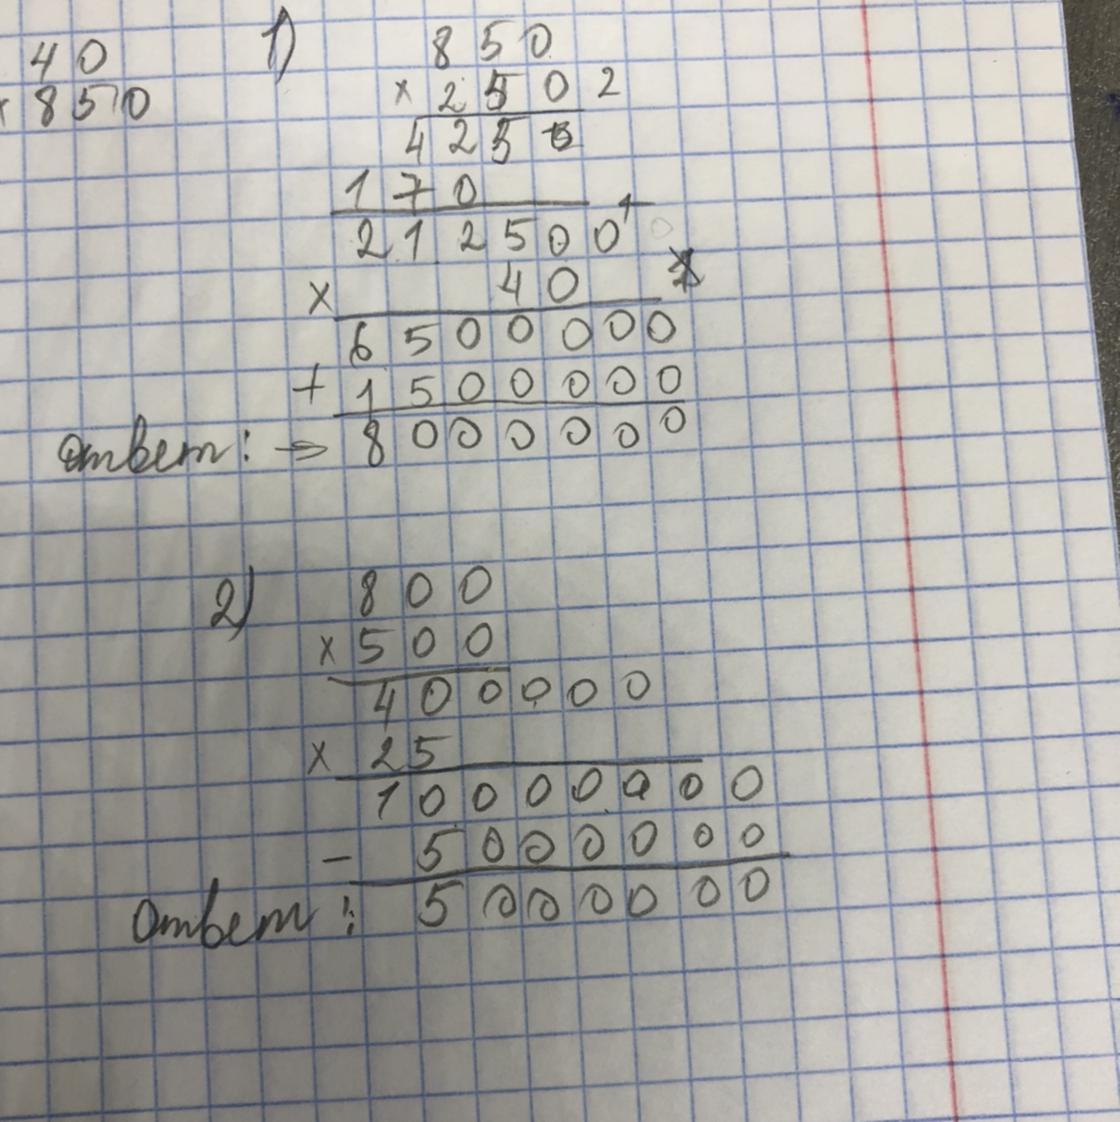 40
× 850
1) 850
× 250 2
425
170
212500
× 40
6500000
+ 1500000
ответ: → 8000000
2) 800
× 500
400000
× 25
10000000
- 5000000
Ответ: 5000000